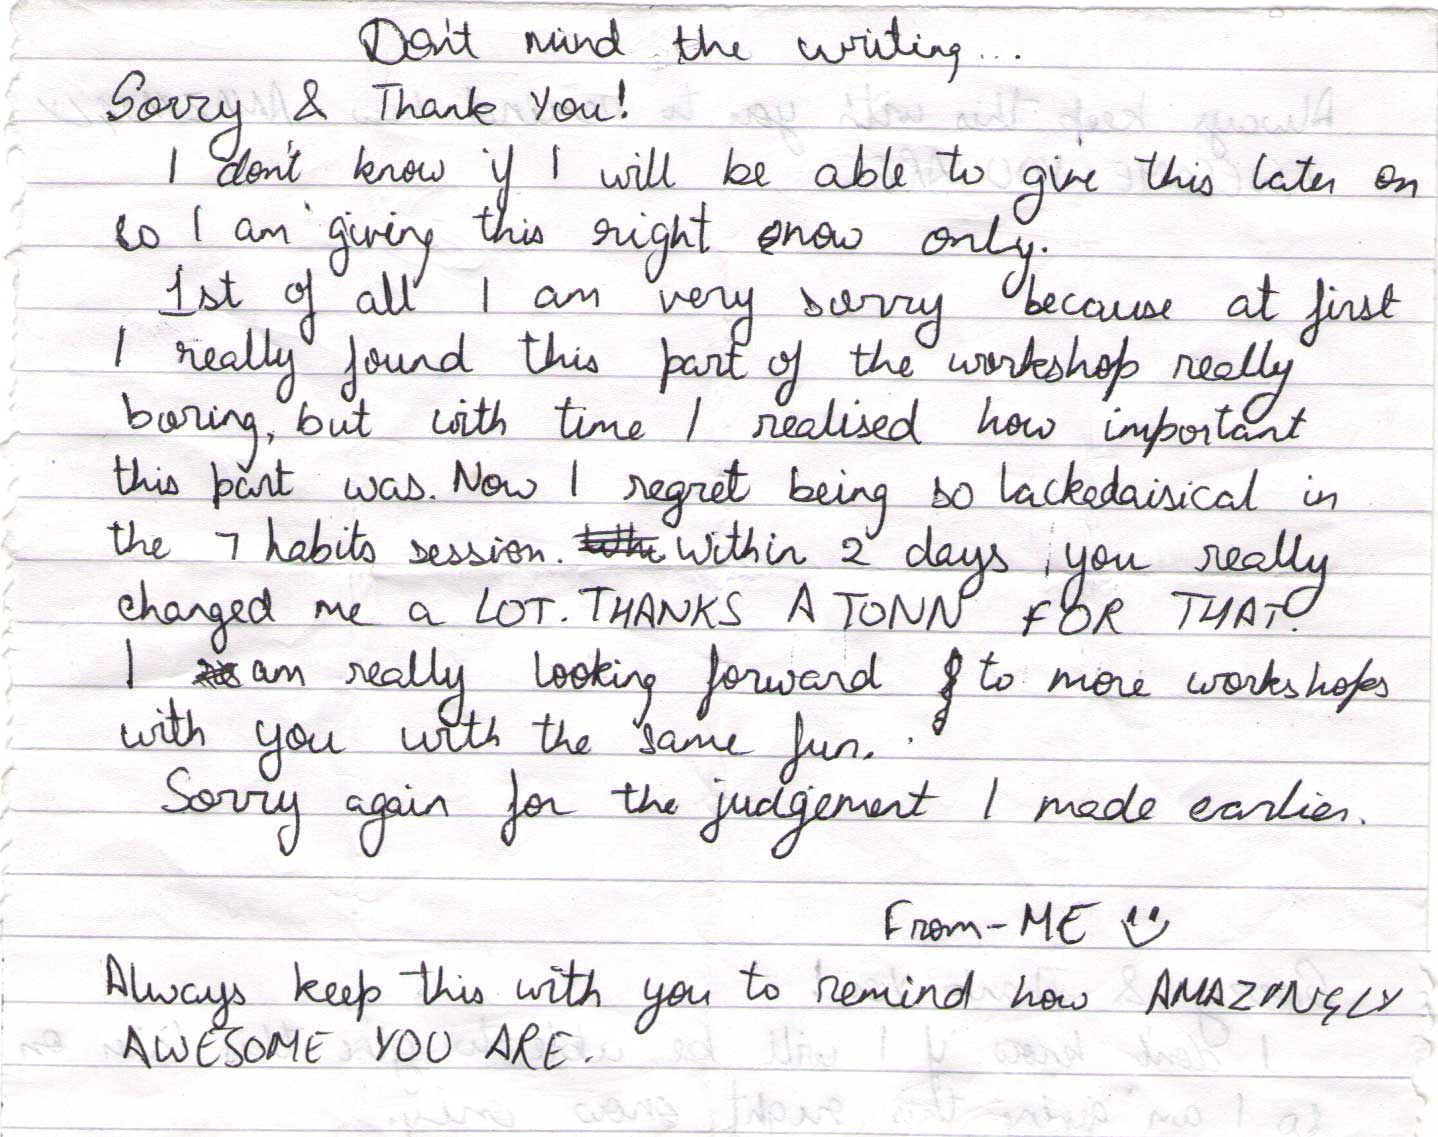 Don't mind the writing...
Sorry & Thank You!
I don't know if I will be able to give this later on
so I am giving this right now only.
1st of all I am very sorry because at first
I really found this part of the workshop really
boring, but with time I realised how important
this part was. Now I regret being so lackedaisical in
the 7 habits session. Within 2 days, you really
changed me a LOT. THANKS A TONN FOR THAT.
I am really looking forward to more workshops
with you with the same fun.
Sorry again for the judgement I made earlier.
From-ME
Always keep this with you to remind how AMAZINGLY
AWESOME YOU ARE.